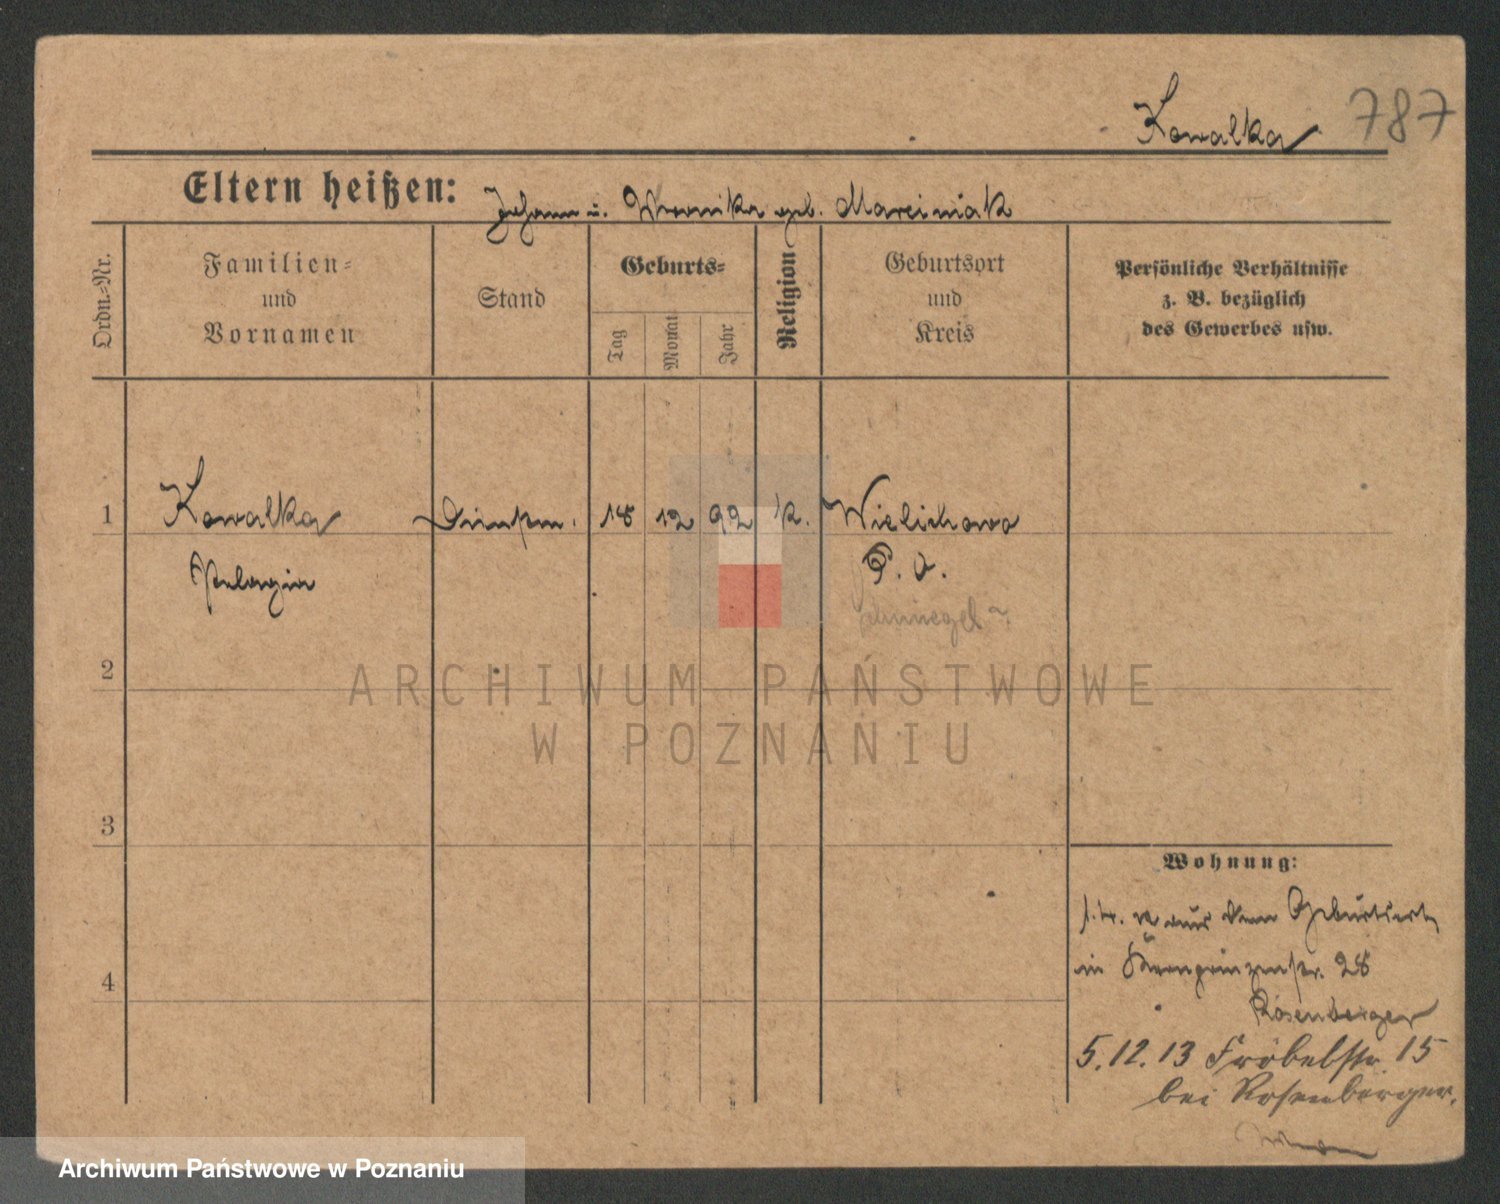 Kowalka 787
Eltern heißen: Johann u. Weronika geb. Marciniak
Ordn.-Nr.
Familien-
und
Vornamen
Stand
Geburts-
Tag
Monat
Jahr
Religion
Geburtsort
und
Kreis
Persönliche Verhältnisse
z. B. bezüglich
des Gewerbes usw.
1 Kowalka Dienstm. 18 12 92 k. Wielichowo
Pelagia P. O.
Schmiegel
2
3
4
Wohnung:
aus dem Geburtsort
in Kronprinzenstr. 28
Rosenberger
5.12.13 Fröbelstr. 15
bei Rosenberger.
ARCHIWUM PAŃSTWOWE
W POZNANIU
Archiwum Państwowe w Poznaniu